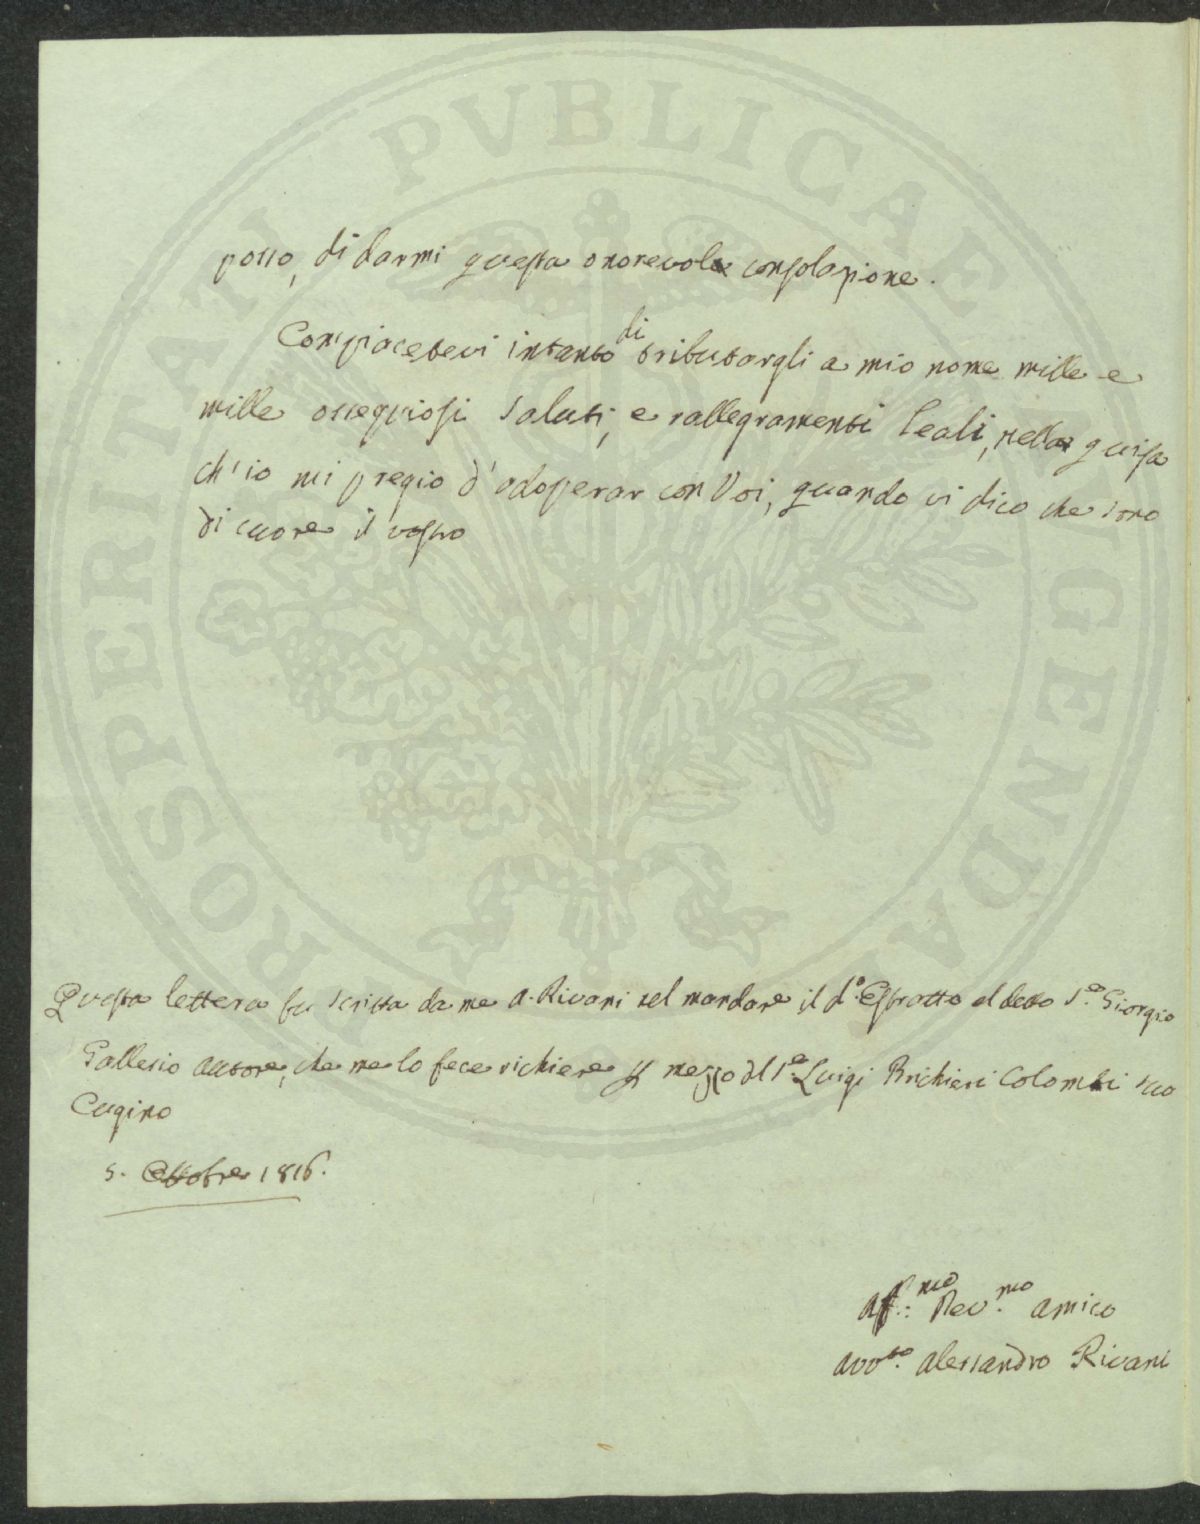 posso, di darmi questa onorevole consolazione.
Compiacetevi intanto di tributargli a mio nome mille e
mille ossequiosi saluti, e rallegramenti leali, nella guisa
ch'io mi pregio d'adoperar con Voi, quando vi dico che sono
di cuore il vostro
Questa lettera fu scritta da me A. Rivani nel mandare il d.o Estratto al detto S.e Giorgio
Gallesio autore, che me lo fece richiere p mezzo del S.e Luigi Brichieri Colombi suo
Cugino
5. Ottobre 1816.
aff.mo Dev.mo amico
avv.to Alessandro Rivani
PROSPERITATI PVBLICAE AVGENDAE